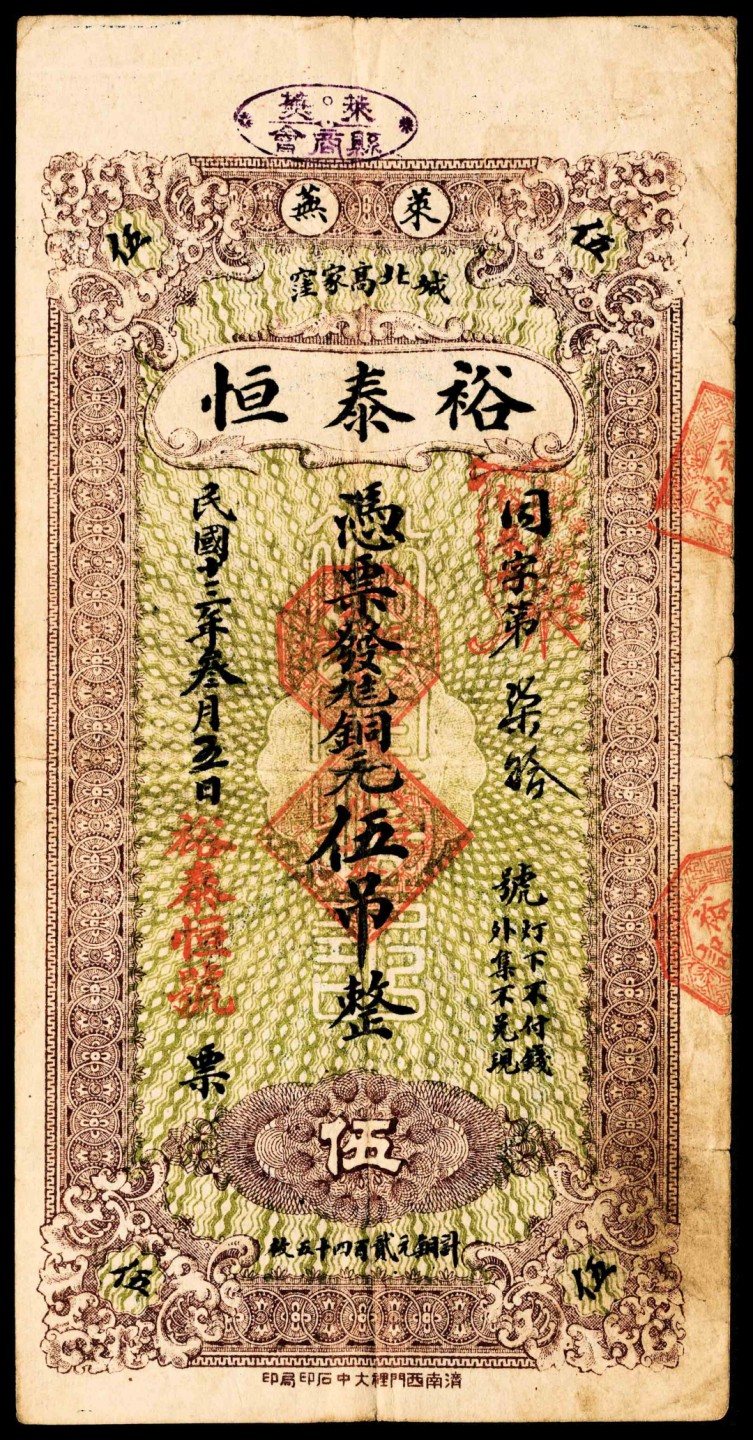 萊蕪
縣商會
萊蕪
伍
伍
城北高家窪
裕泰恒
同字第柒拾號
灯下不付錢
外集不兑現
憑票發兑銅元伍吊整
民國十三年叁月五日
裕泰恒號
票
伍
計銅元貳百四十五枚
伍
伍
濟南西門裡大中石印局印